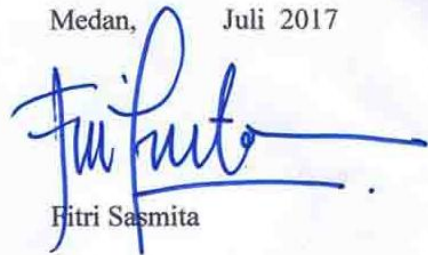 Medan, Juli 2017
Fitri Sasmita